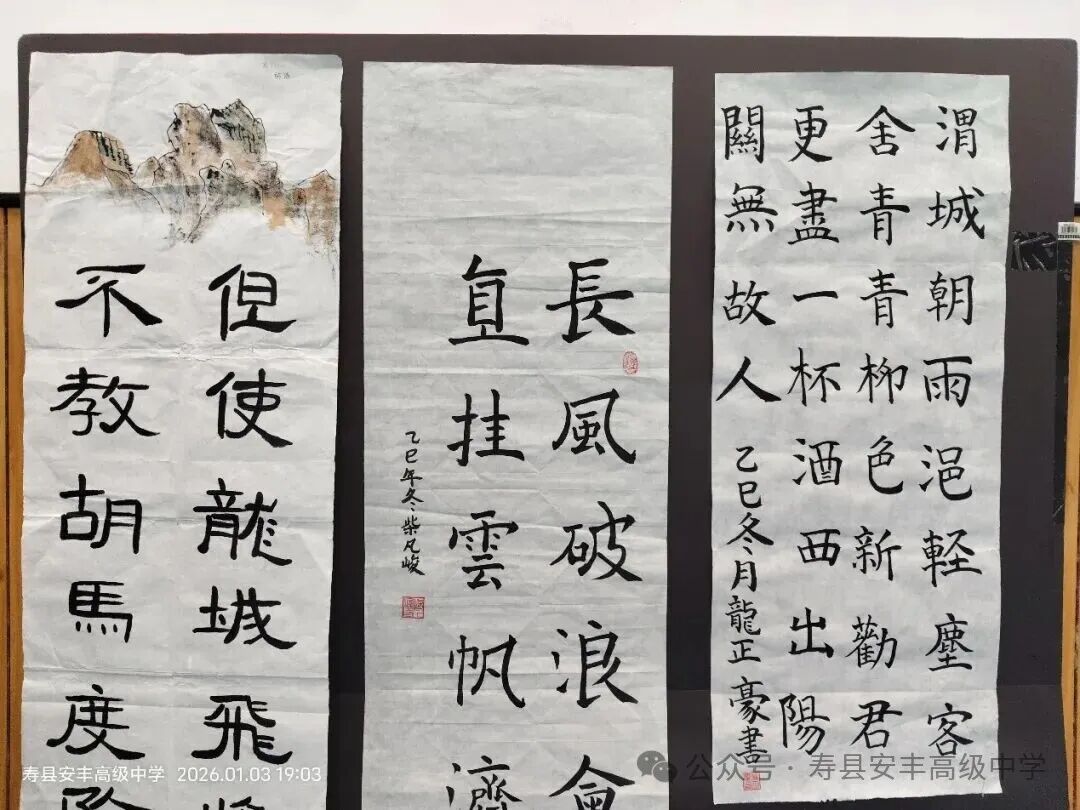 渭城朝雨浥軽塵客
舍青青柳色新勸君
更盡一杯酒西出陽
關無故人
乙巳冬月龍正豪書
長風破浪會
直挂雲帆濟
乙巳年冬柴凡峻
但使龍城飛
不教胡馬度
寿县安丰高级中学 2026.01.03 19:03
公众号·寿县安丰高级中学